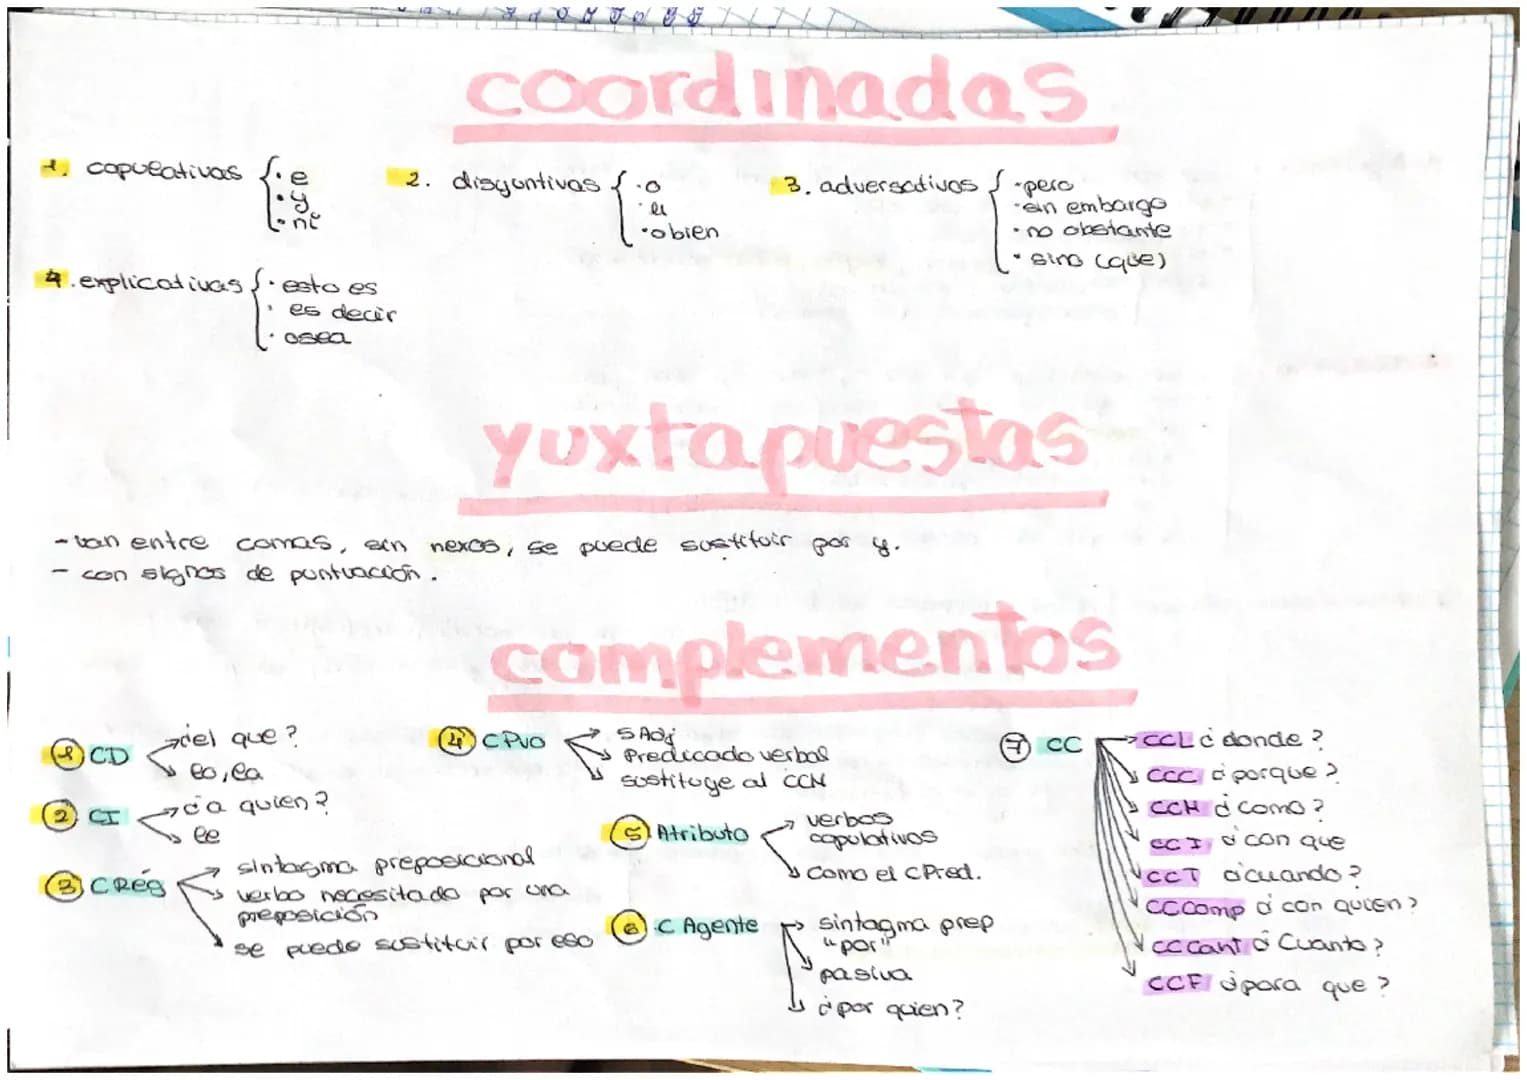 coordinadas
1. copulativas
· e
· y
· ni
2. disyuntivas
· o
· u
· obien
3. adversativas
· pero
· sin embargo
· no obstante
· sino (que)
4. explicativas
· esto es
· es decir
· osea
yuxtapuestas
- van entre comas, sin nexos, se puede sustituir por y.
- con signos de puntuación.
complementos
1 CD
¿el que?
lo, la
2 CI
¿a quien?
le
3 CRég
sintagma preposicional
verbo necesitado por una
preposición
se puede sustituir por eso
4 CPvo
SAdj
Predicado verbal
sustituye al CCM
5 Atributo
verbos
copulativos
como el CPred.
6 C Agente
sintagma prep
"por"
pasiva
¿por quien?
7 CC
CCL ¿donde?
CCC ¿porque?
CCM ¿como?
CCI ¿con que
CCT ¿cuando?
CCComp ¿con quien?
CCCant ¿Cuanto?
CCF ¿para que?